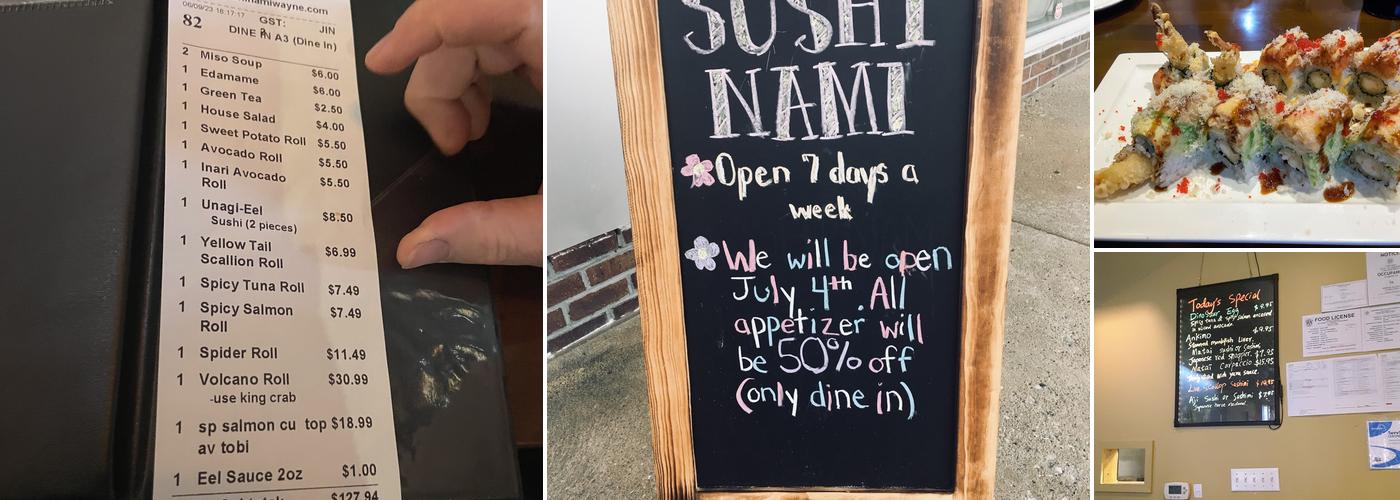 namiwayne.com
06/09/23 18:17:17
82
GST:
JIN
DINE IN A3 (Dine In)
2 Miso Soup $6.00
1 Edamame $6.00
1 Green Tea $2.50
1 House Salad $4.00
1 Sweet Potato Roll $5.50
1 Avocado Roll $5.50
1 Inari Avocado Roll $5.50
1 Unagi-Eel $8.50
Sushi (2 pieces)
1 Yellow Tail
Scallion Roll $6.99
1 Spicy Tuna Roll $7.49
1 Spicy Salmon
Roll $7.49
1 Spider Roll $11.49
1 Volcano Roll $30.99
-use king crab
1 sp salmon cu top $18.99
av tobi
1 Eel Sauce 2oz $1.00
$127.94
SUSHI
NAMI
Open 7 days a
week
We will be open
July 4th. All
appetizer will
be 50% off
(only dine in)
Today's Special
Dinosaur Egg $9.95
Spicy tuna & spicy salmon
Ankimo $9.95
Steamed monkfish Liver.
Madai sushi or Sashimi
Japanese red snapper. $7.95
Madai Carpaccio $15.95
yuzu sauce.
Live Scallop Sashimi
Aji Sushi or Sashimi
NOTICE
FOOD LICENSE